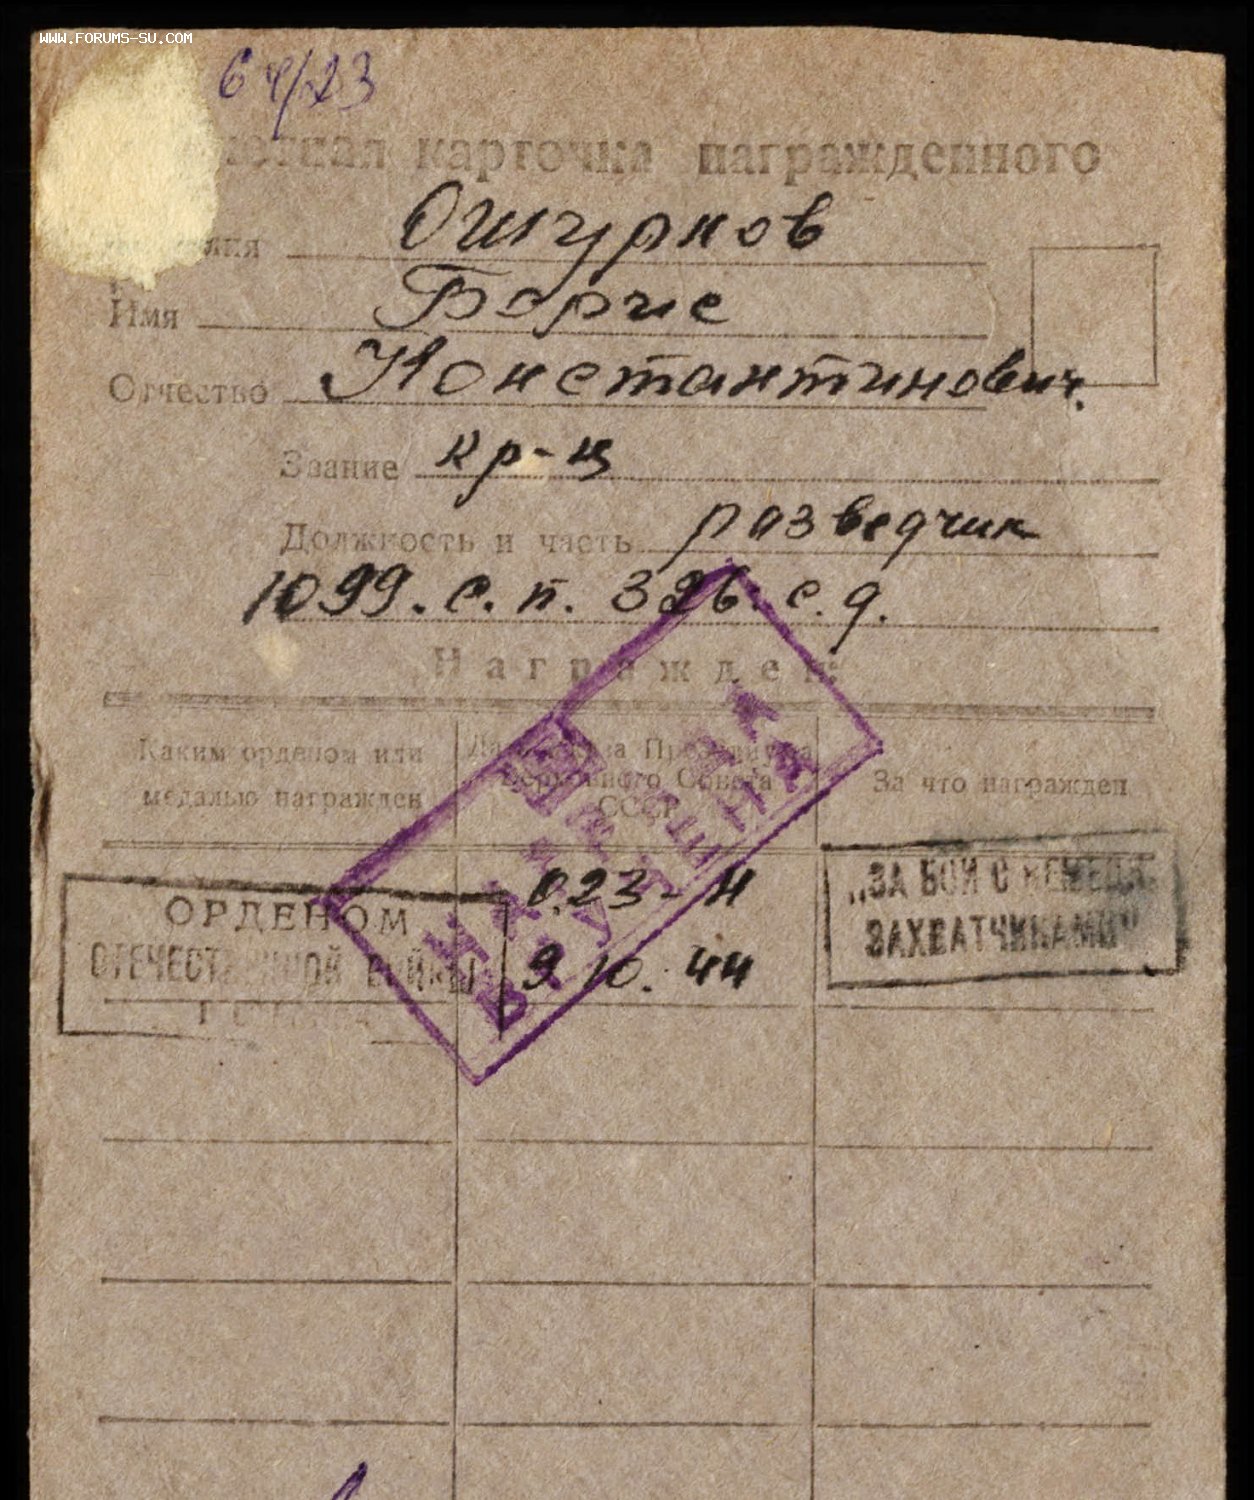 WWW.FORUMS-SU.COM
карточка награжденного
Ошурков
Имя Борис
Отчество Константинович.
Звание кр-ц
Должность и часть разведчик
1099. с. п. 326. с. д.
Награжден:
Каким орденом или
медалью награжден
Верховного Совета
СССР
За что награжден
ОРДЕНОМ
ОТЕЧЕСТВЕННОЙ ВОЙНЫ
023-Н
9.10.44
„ЗА БОИ С НЕМЕЦК.
ЗАХВАТЧИКАМИ"